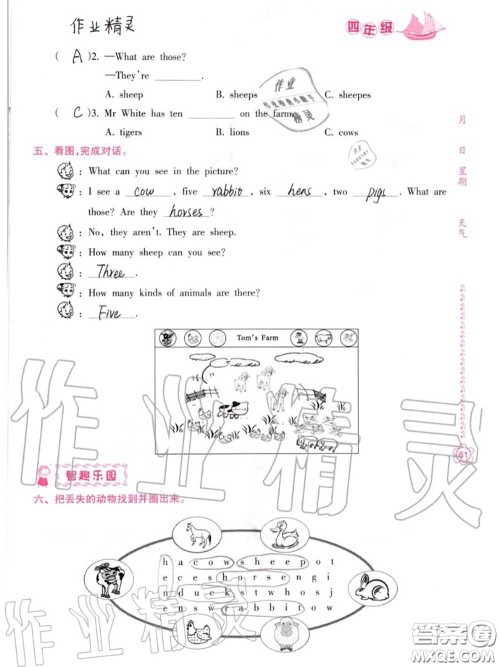 作业精灵
四年级
( A )2. —What are those?
—They're ________.
A. sheep B. sheeps C. sheepes
作业
精灵
( C )3. Mr White has ten ________ on the farm.
A. tigers B. lions C. cows
月 日 星期 天气
五、看图,完成对话。
: What can you see in the picture?
: I see a cow, five rabbito, six hens, two pigs. What are
those? Are they horses?
: No, they aren't. They are sheep.
: How many sheep can you see?
: Three.
: How many kinds of animals are there?
: Five.
Tom's Farm
作业精灵
61
智趣乐园
六、把丢失的动物找到并圈出来。
h a c o w s h e e p o t
e c e s h o r s e n g i
i n d u c k s t w h o s j
e n s w r a b b i t o w
作业精灵
答案圈
MXQE.COM